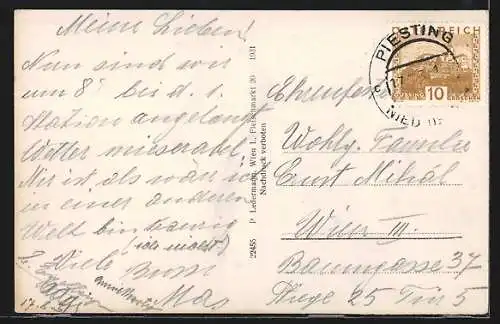 Meine Lieben!
Nun sind wir
um 8h bis d. 1.
Station angelangt
Wetter miserabel
Mir ist als wär ich
in einer anderen
Welt bin traurig
Viele Bussi
Max
17.
P. Ledermann, Wien I., Fleischmarkt 20 1931
Nachdruck verboten
22455
PIESTING
REICH
10
GROSCHEN
Wohlg. Familie
Ernst Mihál
Wien III.
Baumgasse 37
Stiege 25 Tür 5